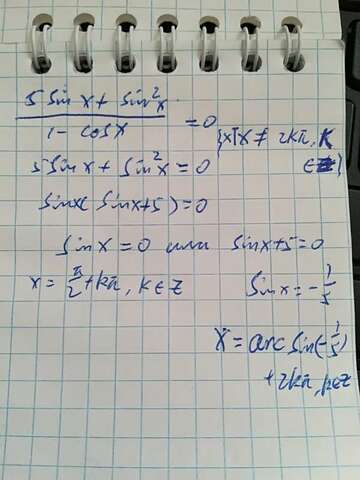 5 sin x + sin²x
――――――― = 0
1 - cos x
{x|x ≠ 2kπ, K ∈ Z}
5 sin x + sin²x = 0
sin x( sin x+5 ) = 0
sin x = 0 или sin x+5 = 0
x = π/2 + kπ, k ∈ Z
sin x = - 1/5
x = arc sin(- 1/5)
+ 2kπ, k∈Z